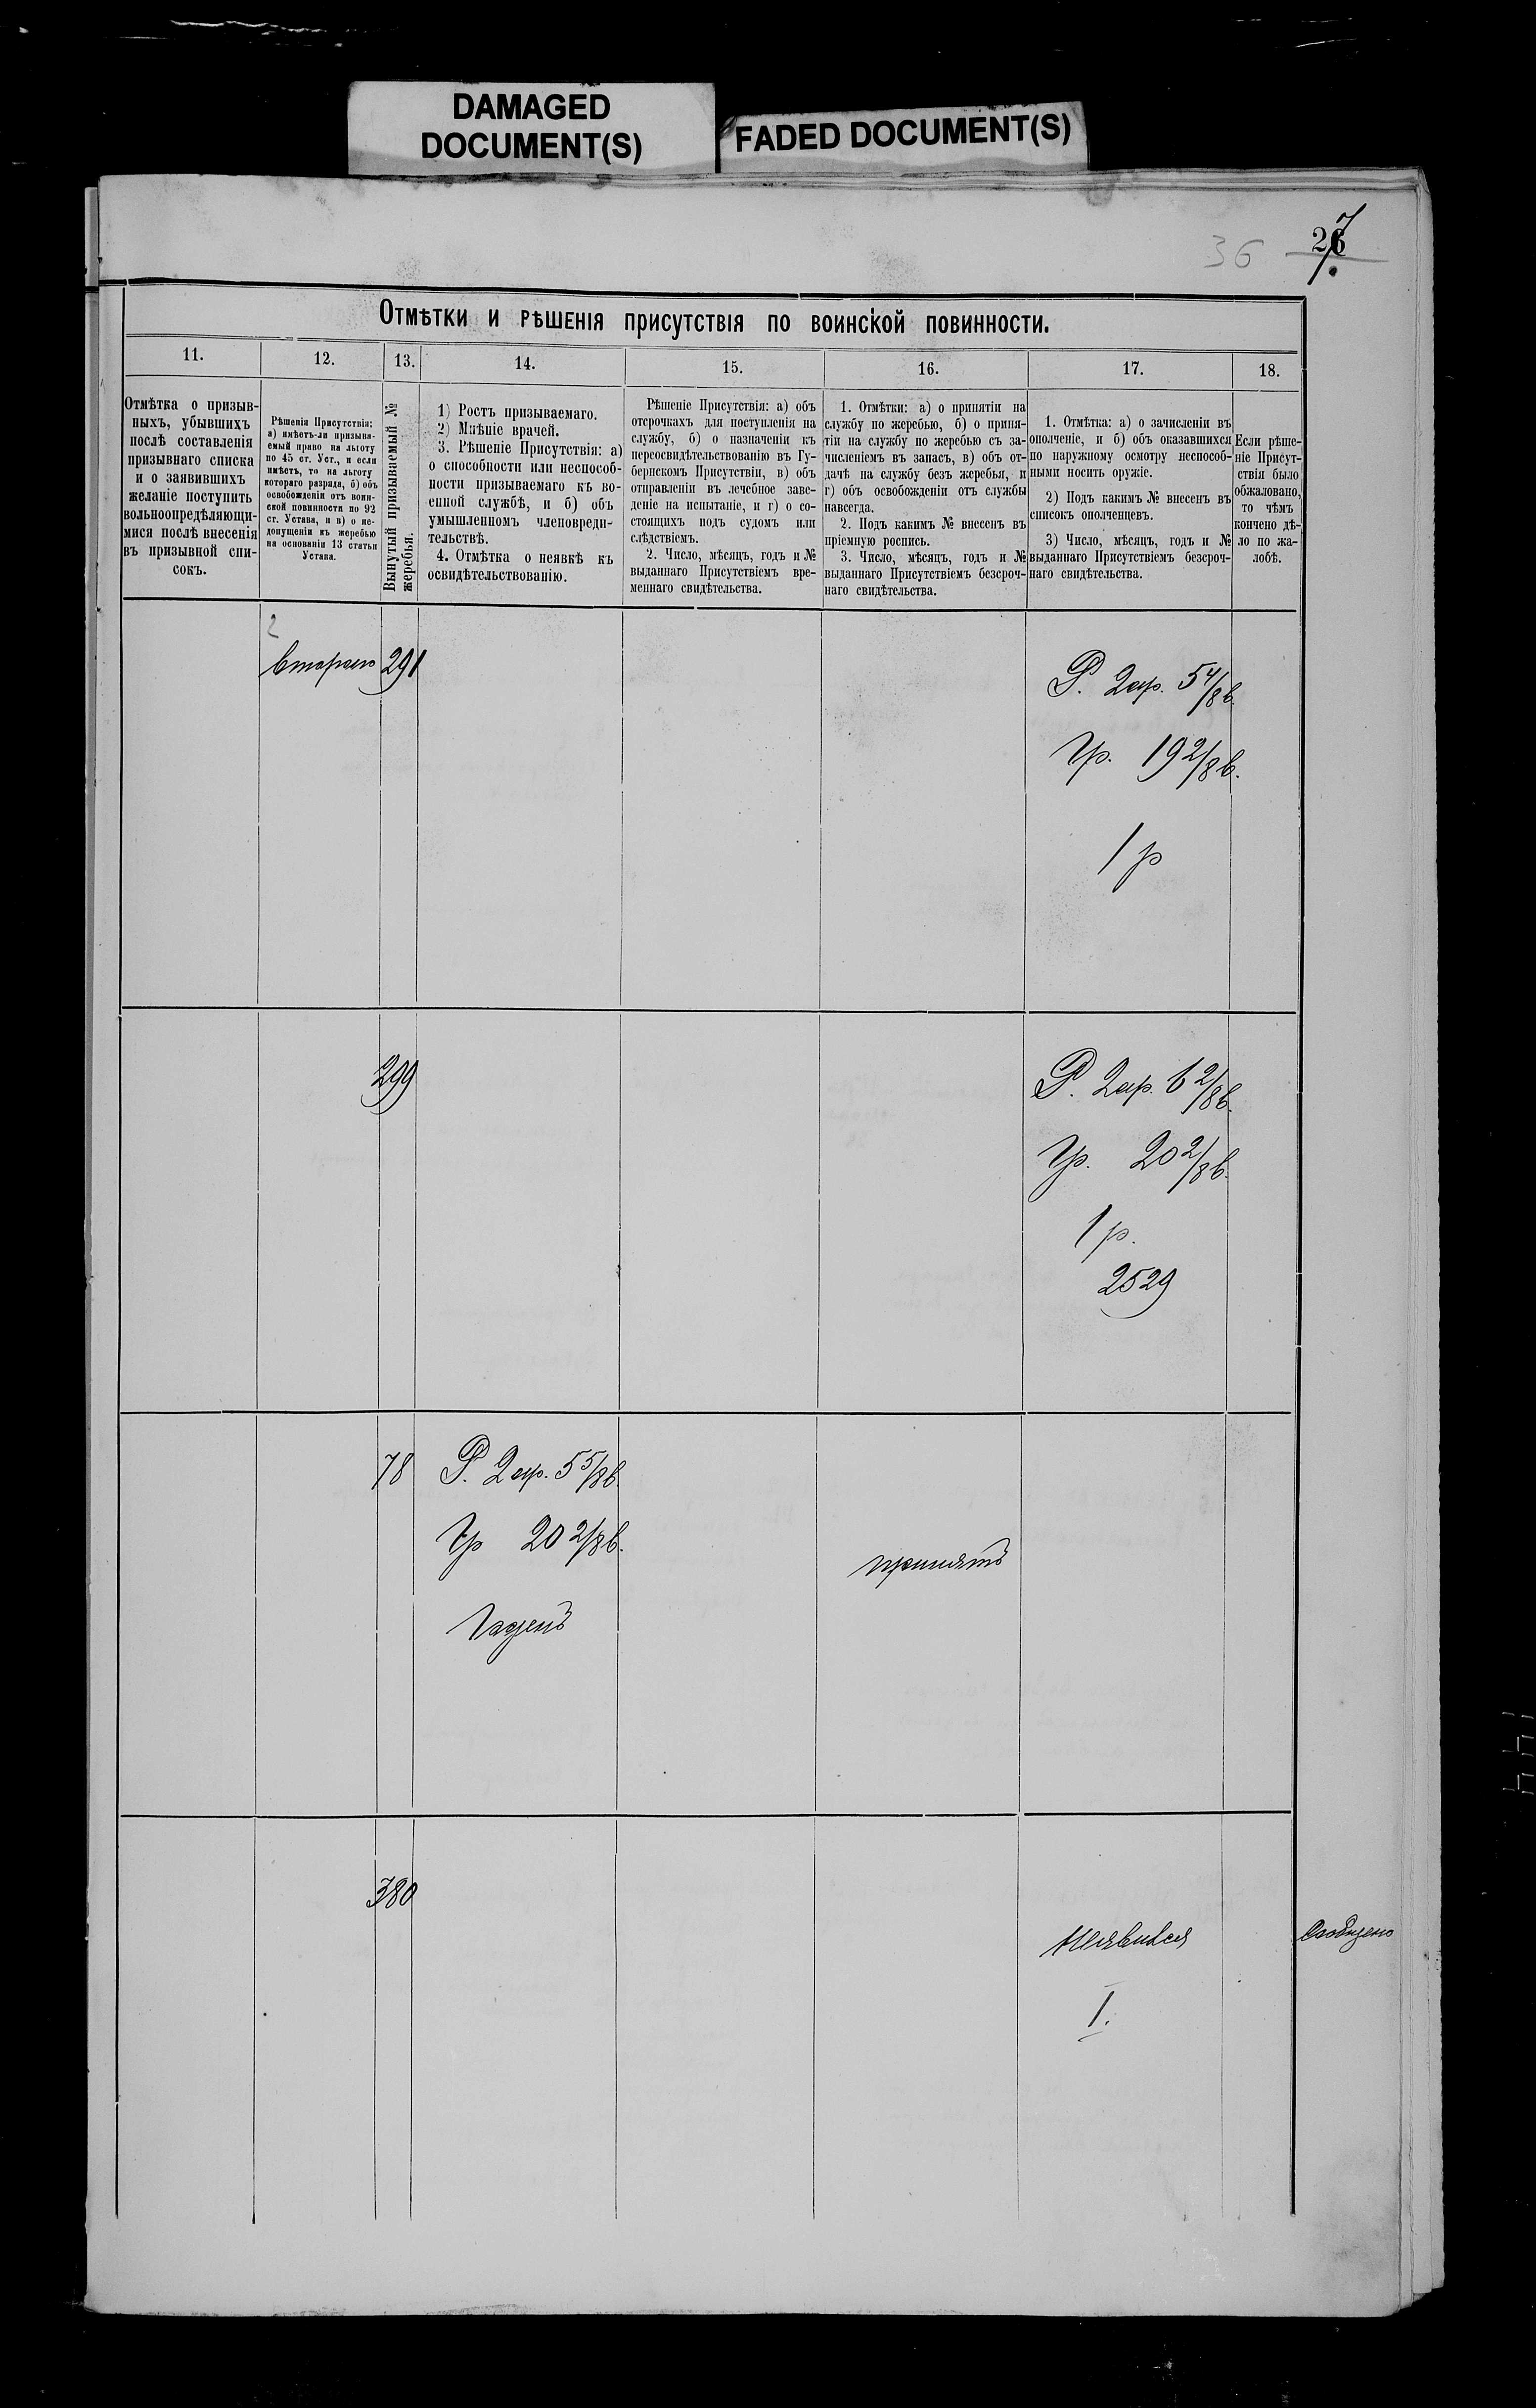 DAMAGED
DOCUMENT(S)
FADED DOCUMENT(S)
36
27
Отмѣтки и рѣшенія присутствія по воинской повинности.
11.
12.
13.
14.
15.
16.
17.
18.
Отмѣтка о призыв-
ныхъ, убывшихъ
послѣ составленія
призывнаго списка
и о заявившихъ
желаніе поступить
вольноопредѣляющи-
мися послѣ внесенія
въ призывной спи-
сокъ.
Рѣшенія Присутствія:
а) имѣетъ-ли призыва-
емый право на льготу
по 45 ст. Уст., и если
имѣетъ, то на льготу
котораго разряда, б) объ
освобожденіи отъ воин-
ской повинности по 92
ст. Устава, и в) о не-
допущеніи къ жеребью
на основаніи 13 статьи
Устава.
Вынутый призываемый №
жеребья.
1) Ростъ призываемаго.
2) Мнѣніе врачей.
3. Рѣшеніе Присутствія: а)
о способности или неспособ-
ности призываемаго къ во-
енной службѣ, и б) объ
умышленномъ членовреди-
тельствѣ.
4. Отмѣтка о неявкѣ къ
освидѣтельствованію.
Рѣшеніе Присутствія: а) объ
отсрочкахъ для поступленія на
службу, б) о назначеніи къ
переосвидѣтельствованію въ Гу-
бернскомъ Присутствіи, в) объ
отправленіи въ лечебное заве-
деніе на испытаніе, и г) о со-
стоящихъ подъ судомъ или
слѣдствіемъ.
2. Число, мѣсяцъ, годъ и №
выданнаго Присутствіемъ вре-
меннаго свидѣтельства.
1. Отмѣтки: а) о принятіи на
службу по жеребью, б) о приня-
тіи на службу по жеребью съ за-
численіемъ въ запасъ, в) объ от-
дачѣ на службу безъ жеребья, и
г) объ освобожденіи отъ службы
навсегда.
2. Подъ какимъ № внесенъ въ
пріемную роспись.
3. Число, мѣсяцъ, годъ и №
выданнаго Присутствіемъ безсроч-
наго свидѣтельства.
1. Отмѣтка: а) о зачисленіи въ
ополченіе, и б) объ оказавшихся
по наружному осмотру неспособ-
ными носить оружіе.
2) Подъ какимъ № внесенъ въ
списокъ ополченцевъ.
3) Число, мѣсяцъ, годъ и №
выданнаго Присутствіемъ безсроч-
наго свидѣтельства.
Если рѣше-
ніе Присут-
ствія было
обжаловано,
то чѣмъ
кончено дѣ-
ло по жа-
лобѣ.
2
втораго
291
Р. 2ар. 5 4/8 в.
Гр. 19 2/8 в.
1 р
299
Р. 2ар. 6 2/8 в.
Гр. 20 2/8 в.
1 р.
2529
78
Р. 2ар. 5 5/8 в.
Гр 20 2/8 в.
Годенъ
принятъ
380
Неявился
I.
Сообщено